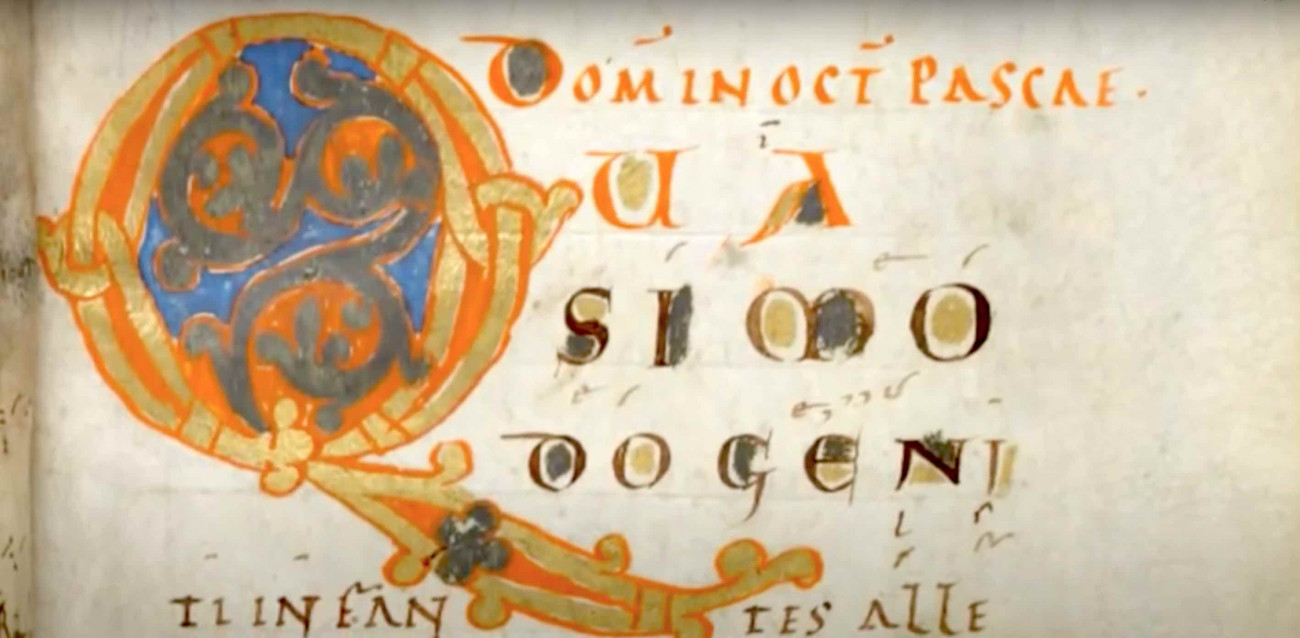 DOM̄ IN OCT̄ PASCAE.
QUA
SIMO
DOGENI
TI INFANTES ALLE